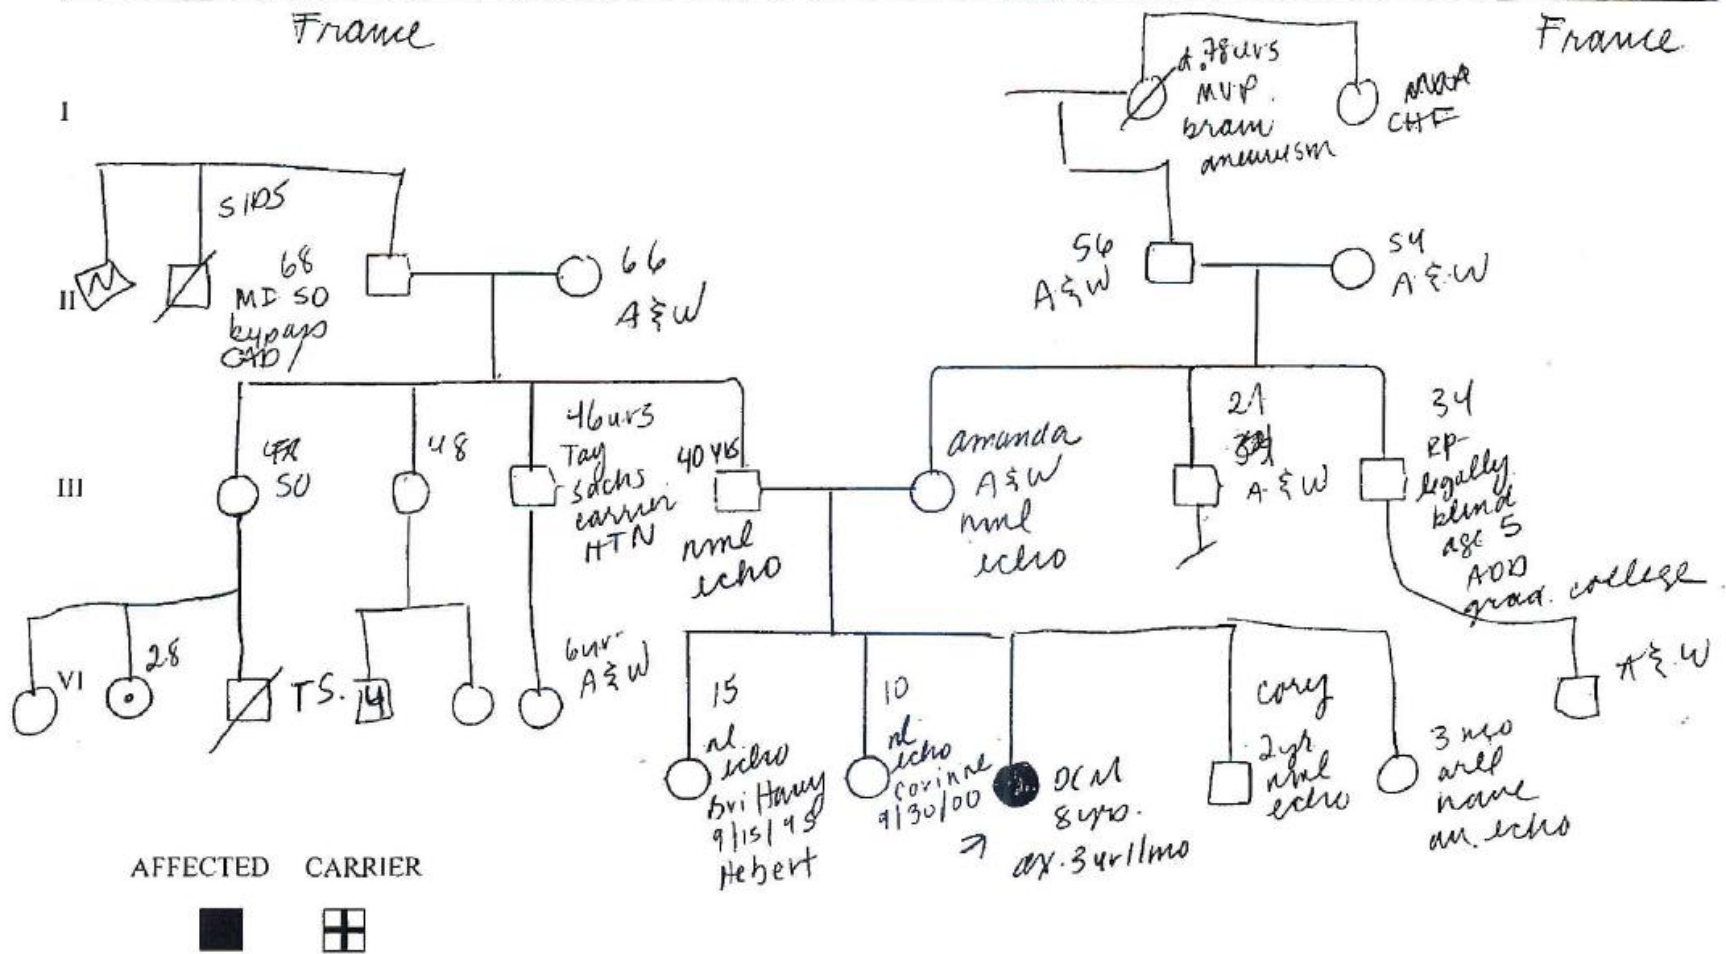 France
France
I
d. 78 yrs
MVP
brain
aneurysm
CHF
SIDS
II
N
68
MI 50
bypass
CAD
66
A & W
56
A & W
54
A & W
III
50
48
46 yrs
Tay
Sachs
carrier
HTN
40 yrs
nml
echo
amanda
A & W
nml
echo
21
A & W
34
RP-
legally
blind
age 5
AOD
grad. college
VI
28
T.S.
4
6 yr
A & W
15
nl
echo
Brittany
9/15/95
Hebert
10
nl
echo
Corinne
9/30/00
DCM
8 yrs.
dx. 3 yr 11mo
Cory
2 yr
nml
echo
3 mo
will
have
an echo
A & W
AFFECTED CARRIER